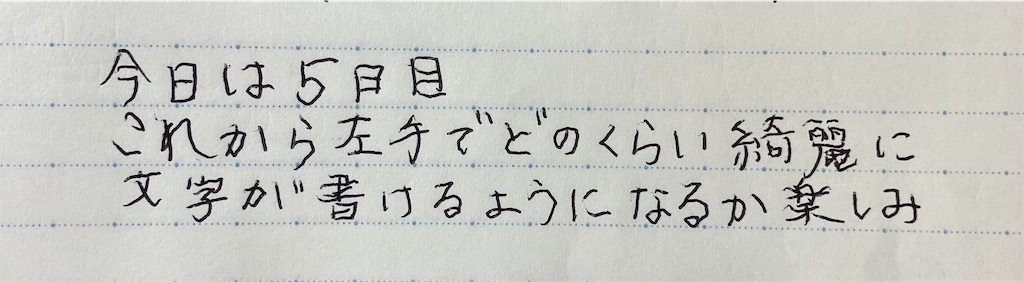 今日は5日目
これから左手でどのくらい綺麗に
文字が書けるようになるか楽しみ